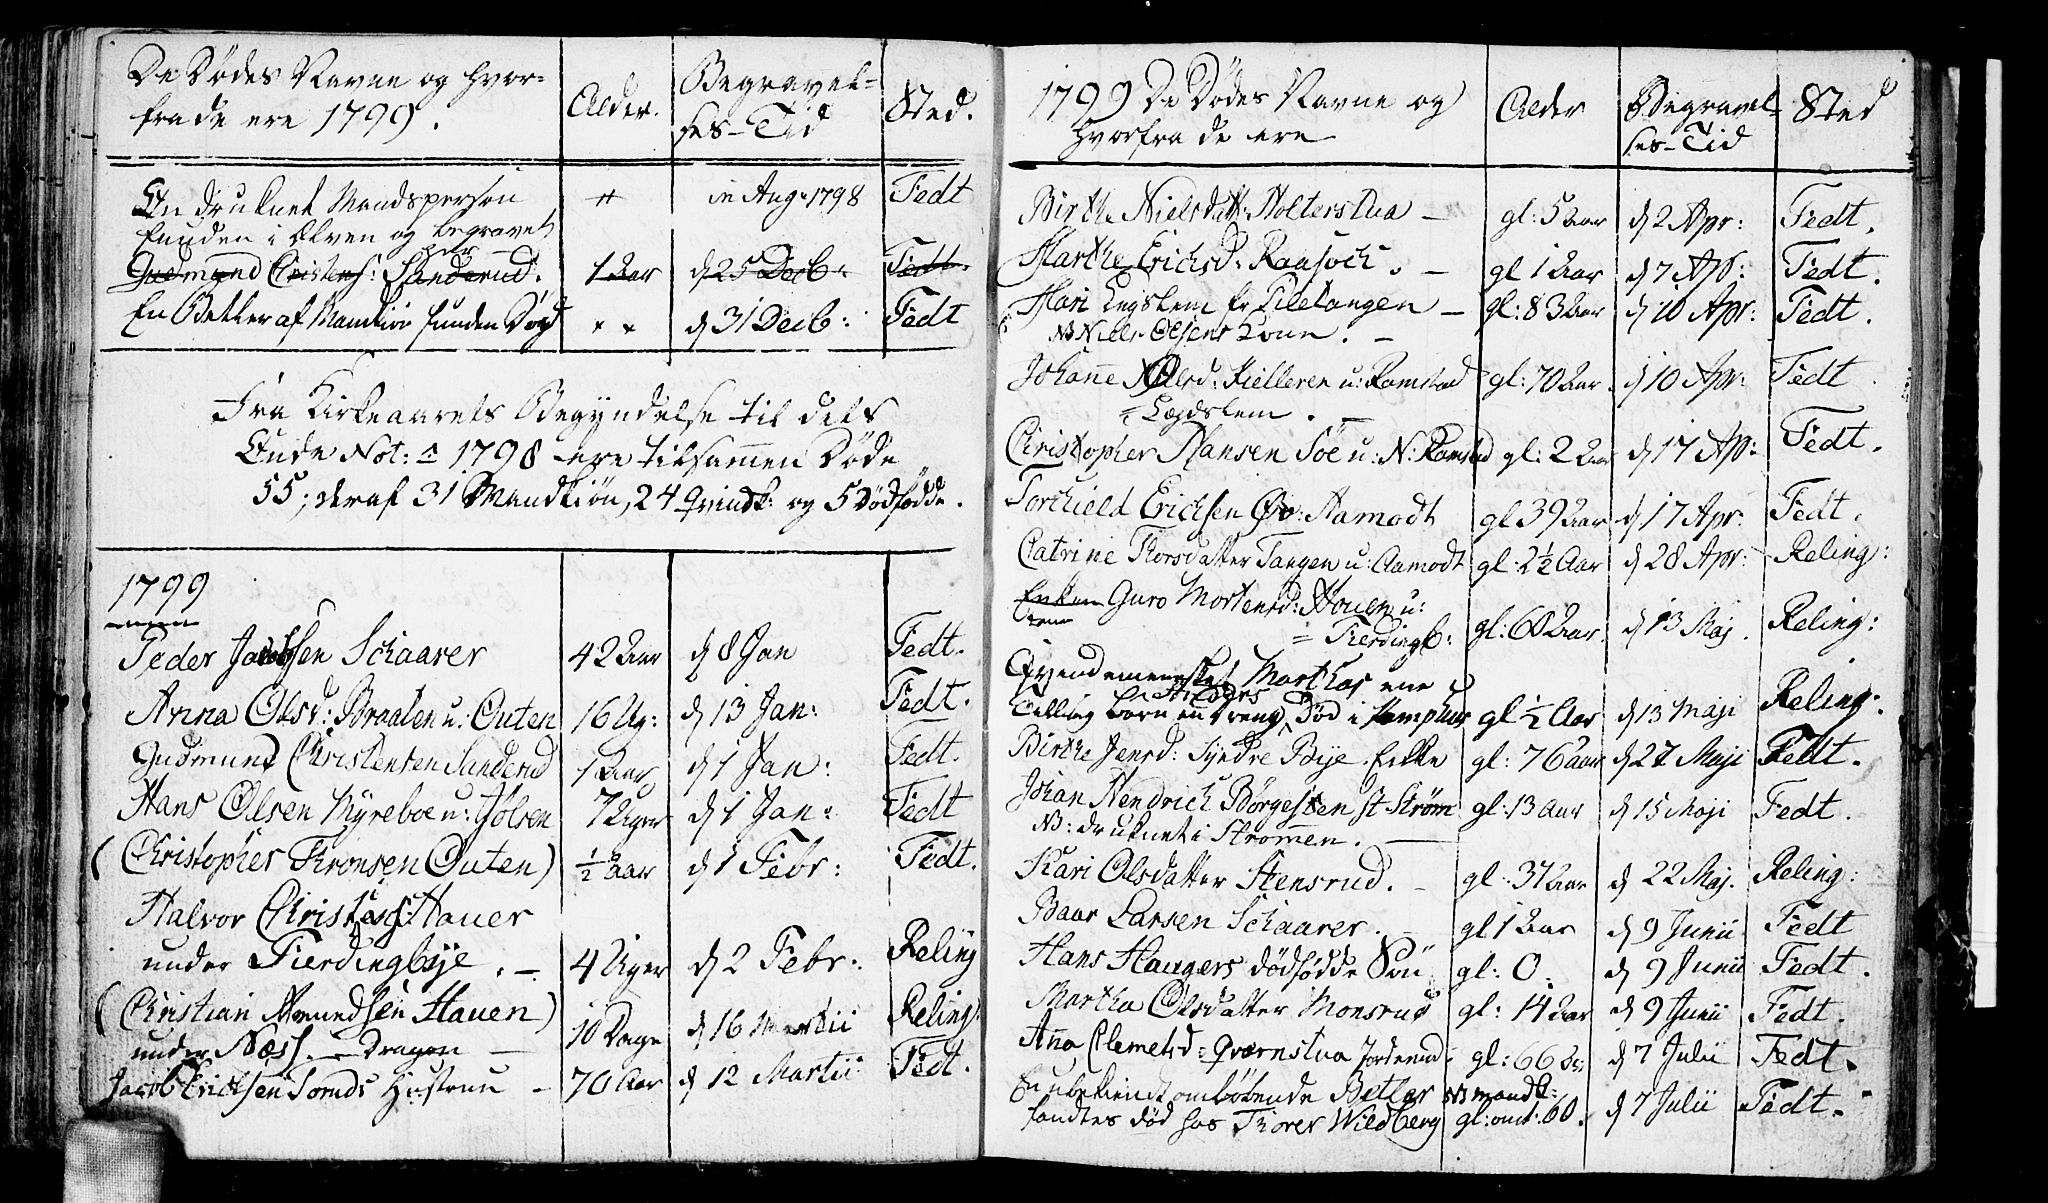 De Dødes Navne og hvor-
fra de ere 1799.
Alder.
Begravel-
ses-Tid
Sted.
En druknet Mandsperson
funden i Elven og begravet
her
in Aug. 1798 Fedt
Gudmund Christens: Sanderud. 1 Aar d 25 Decb: Fedt.
En Betler af Mandkiøn funden Død d 31 Decb: Fedt
Fra Kirkeaarets Begyndelse til dets
Ende Not: 1798 ere tilsammen Døde
55; deraf 31 Mandkiøn, 24 Qvindk: og 5 Dødfødde.
1799
Peder Jacobsen Schaarer 42 Aar d 8 Jan Fedt.
Anna Olsd: Braaten u: Outen 16 Ug: d 13 Jan: Fedt.
Gudmund Christensen Sanderud 1 Aar d 1 Jan: Fedt.
Hans Olsen Myreboe u: Jølsen 7 Uger d 1 Jan: Fedt
(Christopher Thronsen Outen) ½ Aar d 1 Febr: Fedt.
Halvor Christens: Hauer
under Fierdingbye. - 4 Uger d 2 Febr: Reling
(Christian Amundsen Hauen)
under Næss. - Dragon - 10 Dage d 16 Martii Reling:
Jacob Erichsen Tomds Hustrue - 70 Aar d 12 Martii Fedt.
1799 De Dødes Navne og
hvorfra de ere
Alder
Begravel-
ses-Tid
Sted
Birthe Nielsdatt: Holterstua - gl: 5 Aar d 2 Apr: Fedt.
Marthe Erichsd: Raasoch. - gl 1 Aar d 7 Ap: Fedt.
Mari Legslem fr Tiletangen - gl: 83 Aar d 10 Apr: Fedt.
NB Niels Olsens Kone. -
Johanne Olsd: Kielleren u: Ramstad gl: 70 Aar d 10 Apr: Fedt
= Legdslem. -
Christopher Hansen Søe u: N: Ramstad gl: 2 Aar d 17 Ap: Fedt.
Torchield Erichsen Øv: Aamodt gl 39 Aar d 17 Apr: Fedt.
Catrine Thorsdatter Tangen u: Aamodt gl: 2½ Aar d 28 Apr: Reling:
Enken Guro Mortensd: Houen u:
= Fierdingb: gl: 60 Aar d 13 Maj. Reling:
Qvendemennesket Marthas ene
Tvilling barn en dreng, Død i gl ½ Aar d 13 Maji Reling:
Birthe Jensd: Syndre Bye Enke gl: 76 aar d 27 Maji Fedt.
Johan Hendrich Børgesen st-Strøm gl: 13 Aar d 15 Maji Fedt.
NB: druknet i Strømmen. -
Kari Olsdatter Stensrud. - gl: 37 Aar d 22 Maj. Reling:
Baar Larsen Schaarer. - gl 1 Aar d 9 Junii Fedt
Hans Haugers dødfødde Søn gl: 0. d 9 Junii Fedt.
Martha Olsdatter Monsrud gl: 14 Aar d 9 Junii Fedt.
Ana Clemetsd: Qværnstua gl: 66 d 7 Julii Fedt.
En ubekiendt omløbende Betler NB mandk:
fandtes død hos Thorer Wildberg gl: omt: 60. d 7 Julii Fedt.